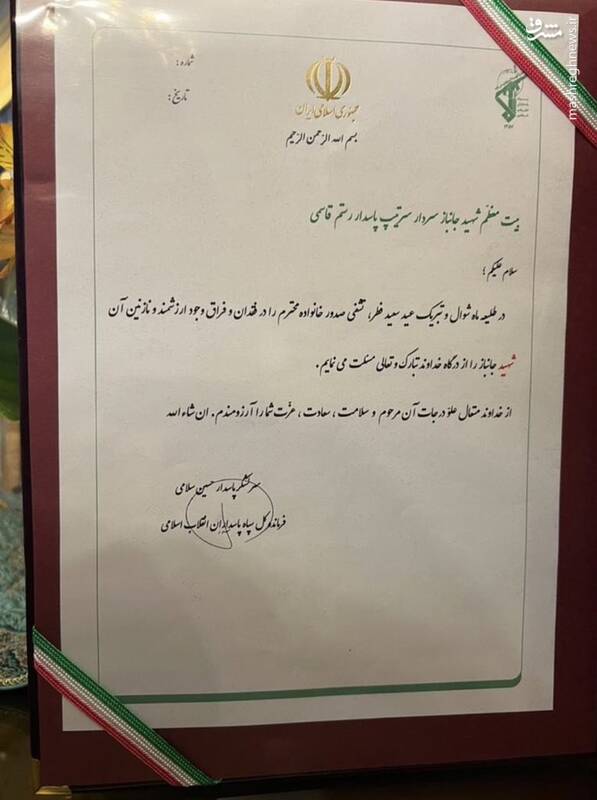 مشرق
mashreghnews.ir
شماره:
تاریخ:
جمهوری اسلامی ایران
بسم الله الرحمن الرحیم
بیت معظم شهید جانباز سردار سرتیپ پاسدار رستم قاسمی
سلام علیکم؛
در طلیعه ماه شوال و تبریک عید سعید فطر، تشفی صدور خانواده محترم را در فقدان و فراق وجود ارزشمند و نازنین آن
شهید جانباز را از درگاه خداوند تبارک و تعالی مسئلت می نمایم.
از خداوند متعال علو درجات آن مرحوم و سلامت، سعادت، عزّت شما را آرزومندم. ان شاء الله
سرلشکر پاسدار حسین سلامی
فرمانده کل سپاه پاسداران انقلاب اسلامی